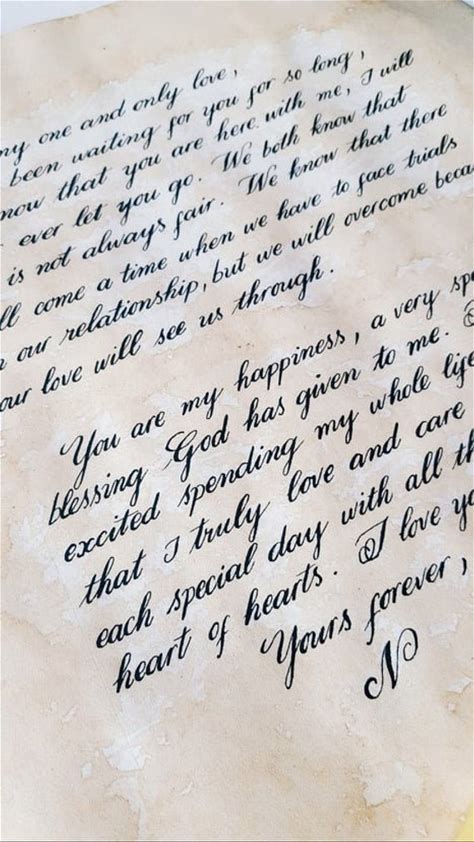 my one and only love,
been waiting for you for so long,
now that you are here with me, I will
ever let you go. We both know that
is not always fair. We know that there
ll come a time when we have to face trials
n our relationship, but we will overcome beca
our love will see us through.
You are my happiness, a very spe
blessing God has given to me.
excited spending my whole life
that I truly love and care
each special day with all th
heart of hearts. I love yo
Yours forever,
N